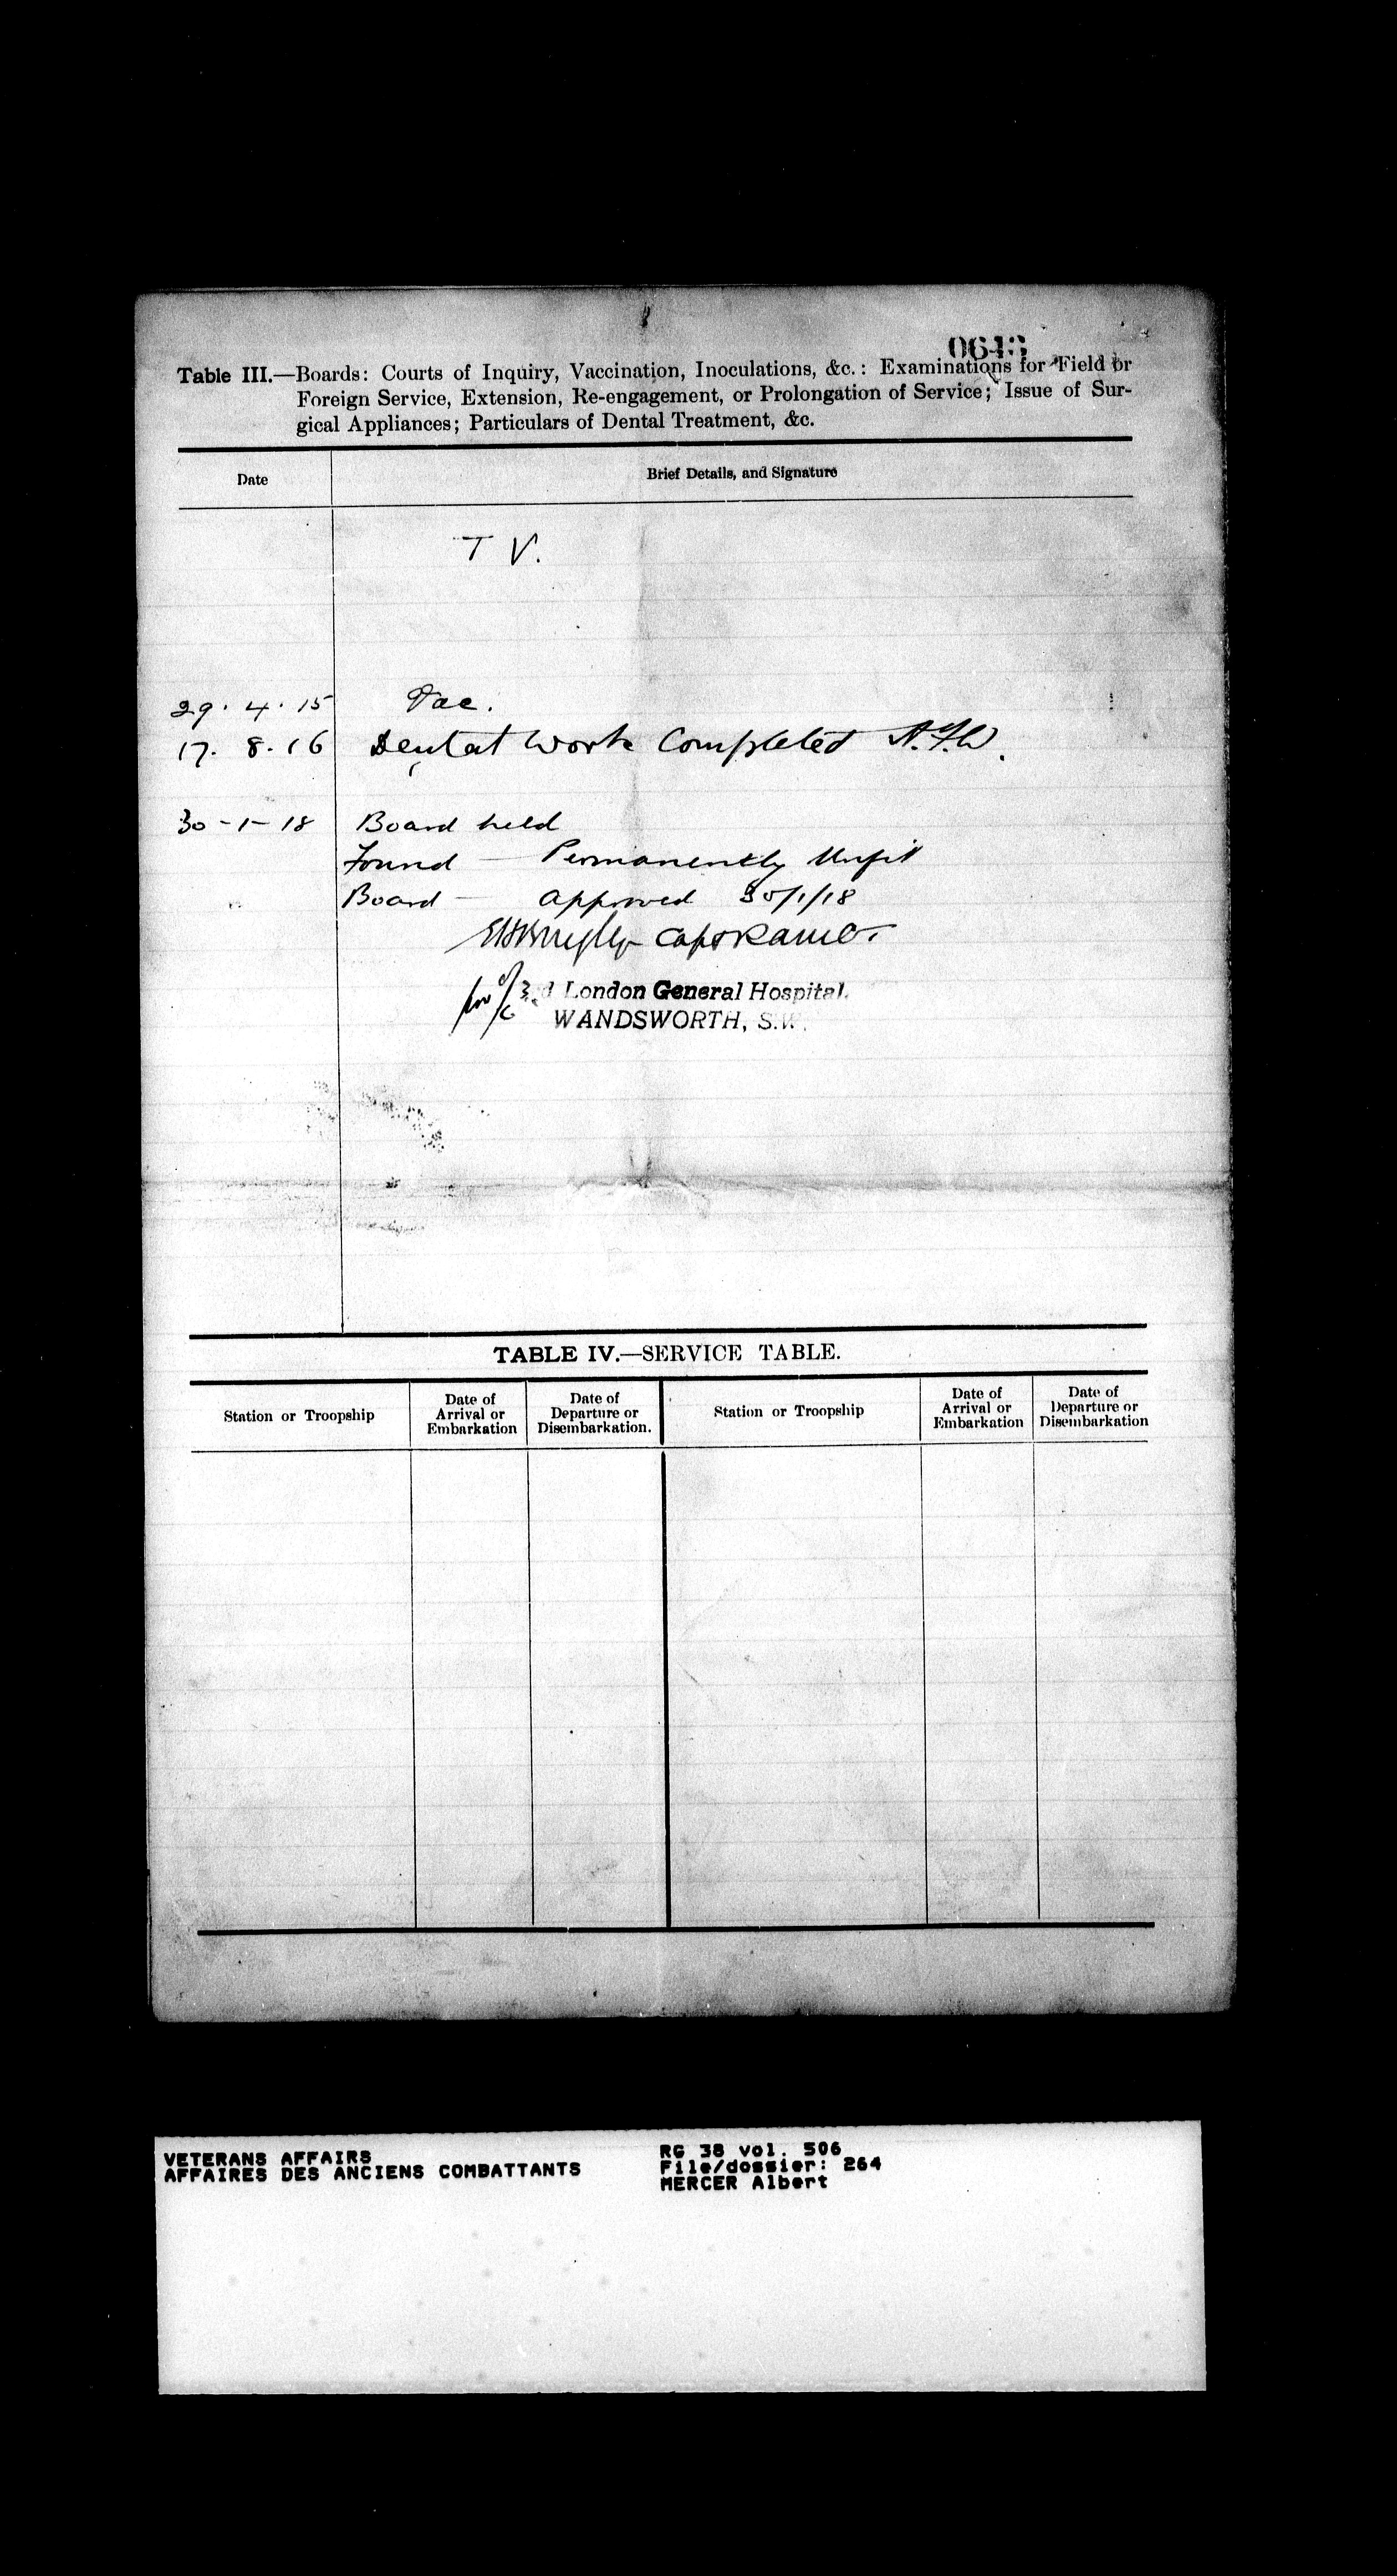 0643
Table III.—Boards: Courts of Inquiry, Vaccination, Inoculations, &c.: Examinations for Field or
Foreign Service, Extension, Re-engagement, or Prolongation of Service; Issue of Sur-
gical Appliances; Particulars of Dental Treatment, &c.
Date Brief Details, and Signature
T V.
29. 4. 15 Vac.
17. 8. 16 Dental Work Completed A.F.W.
30-1-18 Board held
Found — Permanently Unfit
Board — approved 30/1/18
Capt RAMC T
for o/c 3rd London General Hospital,
WANDSWORTH, S.W.
TABLE IV.—SERVICE TABLE.
Station or Troopship Date of Arrival or Embarkation Date of Departure or Disembarkation. Station or Troopship Date of Arrival or Embarkation Date of Departure or Disembarkation
VETERANS AFFAIRS
AFFAIRES DES ANCIENS COMBATTANTS
RG 38 vol. 506
File/dossier: 264
MERCER Albert